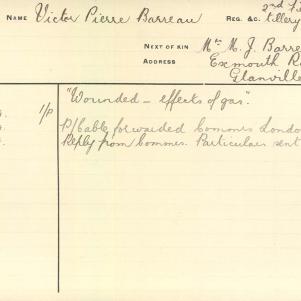 2nd
NAME Victor Pierre Barreau REG. &C. tillery
NEXT OF KIN Mr M. J. Barre
ADDRESS Exmouth R
Glanville
"Wounded - effects of gas".
1/P P/Cable forwarded Commrs London
Reply from Commrs. Particulars sent